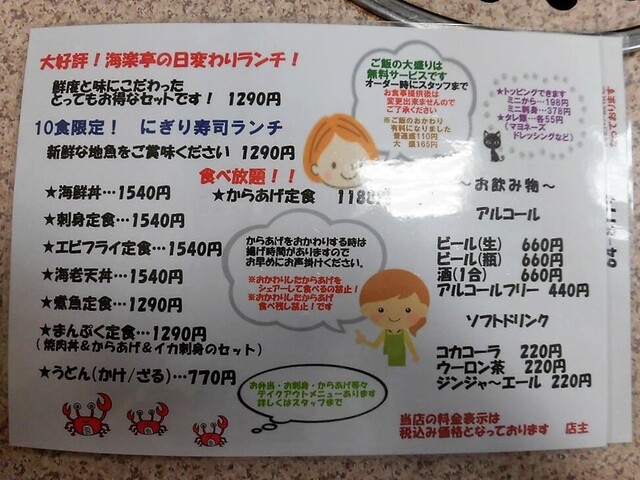 大好評！海楽亭の日変わりランチ！
鮮度と味にこだわった
とってもお得なセットです！ 1290円
10食限定！ にぎり寿司ランチ
新鮮な地魚をご賞味ください 1290円
食べ放題！！
★からあげ定食… 1188円
★海鮮丼…1540円
★刺身定食…1540円
★エビフライ定食…1540円
★海老天丼…1540円
★煮魚定食…1290円
★まんぷく定食…1290円
(焼肉丼&からあげ&イカ刺身のセット)
★うどん(かけ/ざる)…770円
ご飯の大盛りは
無料サービスです
オーダー時にスタッフまで
お食事提供後は
変更出来ませんので
ご了承ください
※ご飯のおかわり
有料になりました
普通盛110円
大 盛165円
★トッピングできます
ミニから…198円
ミニ刺身…378円
★タレ類…各55円
(マヨネーズ
ドレッシングなど)
からあげをおかわりする時は
揚げ時間がありますので
お早めにお声掛けください。
※おかわりしたからあげを
シェアーして食べるの禁止！
※おかわりしたからあげ
食べ残し禁止！です
お弁当・お刺身・からあげ等々
テイクアウトメニューあります
詳しくはスタッフまで
～お飲み物～
アルコール
ビール(生) 660円
ビール(瓶) 660円
酒(1合) 660円
アルコールフリー 440円
ソフトドリンク
コカコーラ 220円
ウーロン茶 220円
ジンジャ～エール 220円
当店の料金表示は
税込み価格となっております 店主